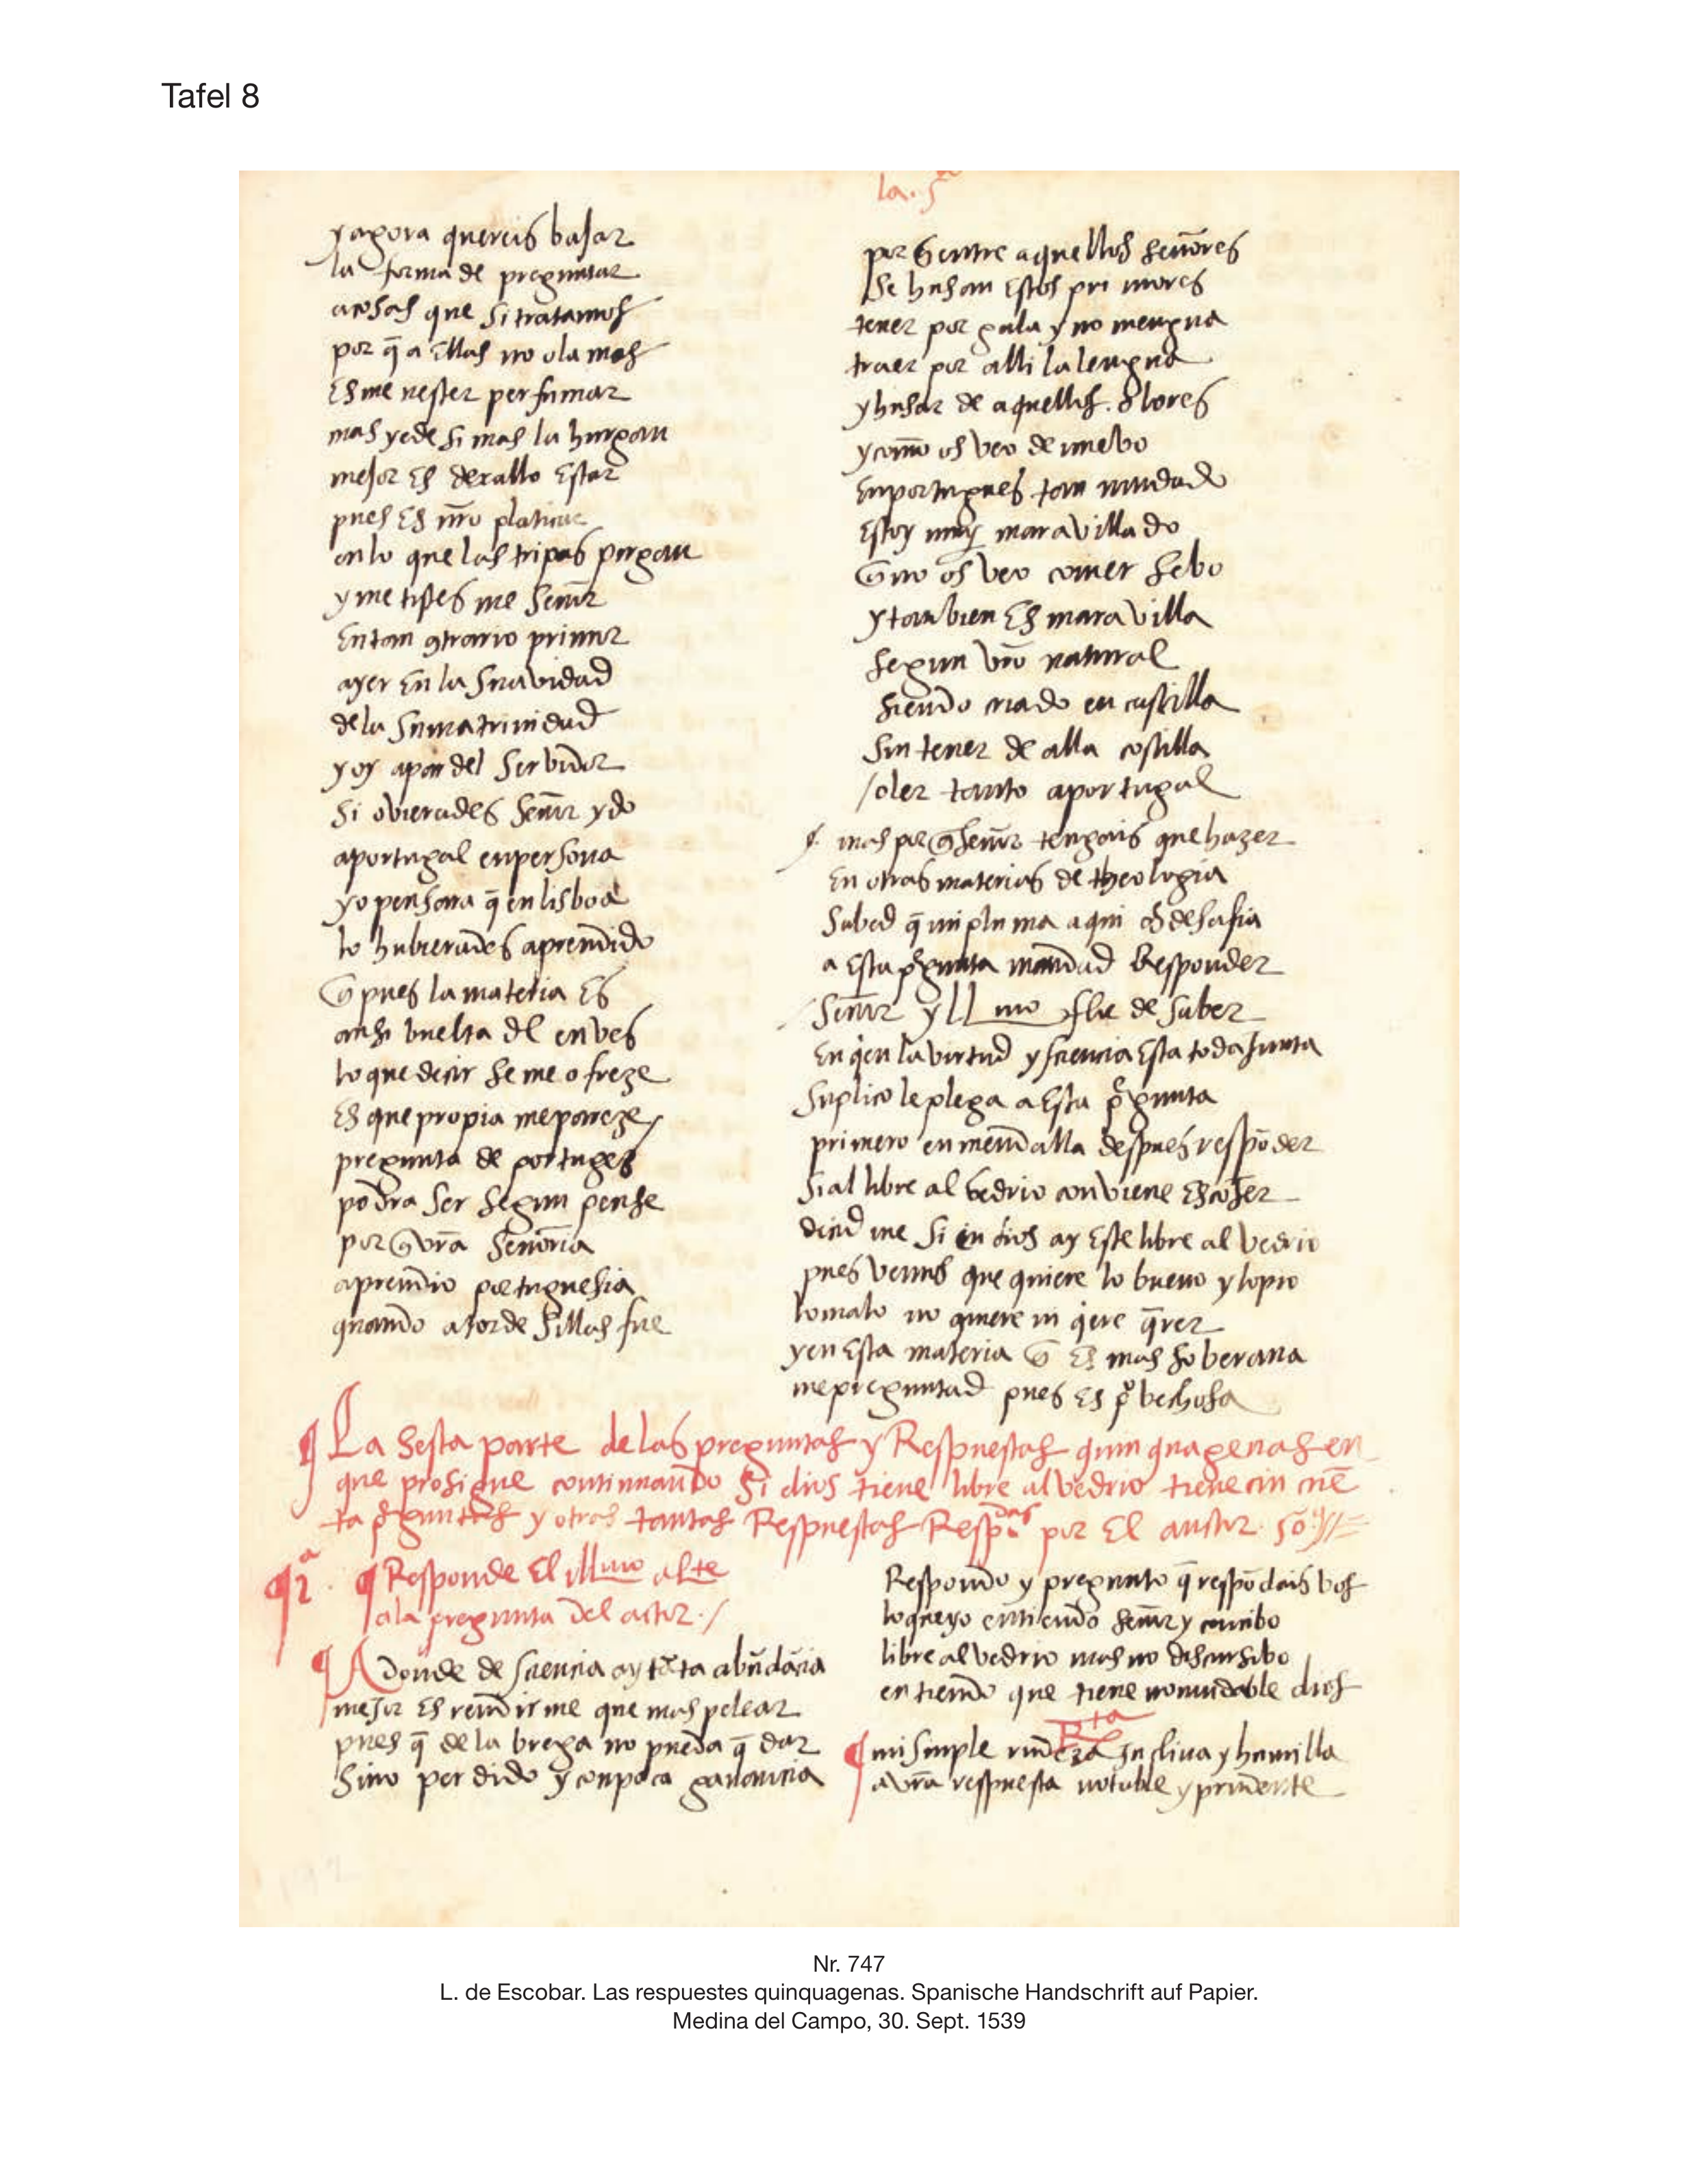 Tafel 8
la. 5ª
y agora quereis bajar
la forma de preguntar
a cosas que si tratamos
por q̄ a ellas no olamos
Es me nester perfumar
mas yede si mas la hurgan
mejor Es dexallo Estar
pues Es nr̄o platicar
en lo que las tripas purgan
y metistes me señor
En tan contrario primor
ayer En la Suavidad
de la Suma trinidad
y oy a par del Servidor
Si ovierades señor ydo
a portugal en persona
yo pensara q̄ en lisboa
lo hubierades aprendido
q̄ pues la materia Es
ansi buelta dl en ves
lo que decir se me ofreze
Es que propia me pareze
pregunta de portuges
podra Ser Segun pense
por q̄ vr̄a Señoria
aprendio portuguesia
quando a tordesillas fue
por q̄ entre aquellos señores
Se husan Estos pri mores
tener por gala y no mengua
traer por alli la lengua
y husar de aquellos. olores
y como os veo de nuebo
En portugues tan mudado
Estoy muy maravillado
q̄ no os veo comer sebo
y tan bien Es mara villa
segun vr̄o natural
siendo criado en castilla
Sin tener de alla costilla
/oler tanto a portugal
mas por q̄ señor tengais que hazer
En otras materias de theologia
Sabed q̄ mi pluma aqui os desafia
a Esta pregunta mandad Responder
Señor y ll mo flue de saber
En qen la virtud y sciencia Esta toda Junta
Suplico le plega a Esta pregunta
primero enmendalla despues respōder
Si al libre al bedrio conviene Escojer
decid me Si en dios ay Este libre al vedrio
pues vemos que quiere lo bueno y lo pio
lo malo no quiere ni qere q̄rer
y en Esta materia q̄ Es mas soberana
me preguntad pues Es pvechosa
¶ La Sesta parte de las preguntas y Respuestas quinquagenas en
que prosigue continuando Si dios tiene libre alvedrio tiene cin cuē
ta pguntas y otras tantas Respuestas Respdas por El auctor. so
¶ 1ª. ¶ Responde El illmo alte
a la pregunta del actor./
¶ A Donde de sciencia ay tāta abūdācia
mejor Es rendirme que mas pelear
pues q̄ de la brega no pueda q̄ dar
Sino perdido y con poca ganancia
Respondo y pregunto q̄ respōdais vos
lo que yo entiendo señor y concibo
libre alvedrio mas no discursibo
entiendo que tiene nomudable dios
Rta
¶ mi simple rudeza Inclina y humilla
a vr̄a respuesta notable y prudente
Nr. 747
L. de Escobar. Las respuestes quinquagenas. Spanische Handschrift auf Papier.
Medina del Campo, 30. Sept. 1539